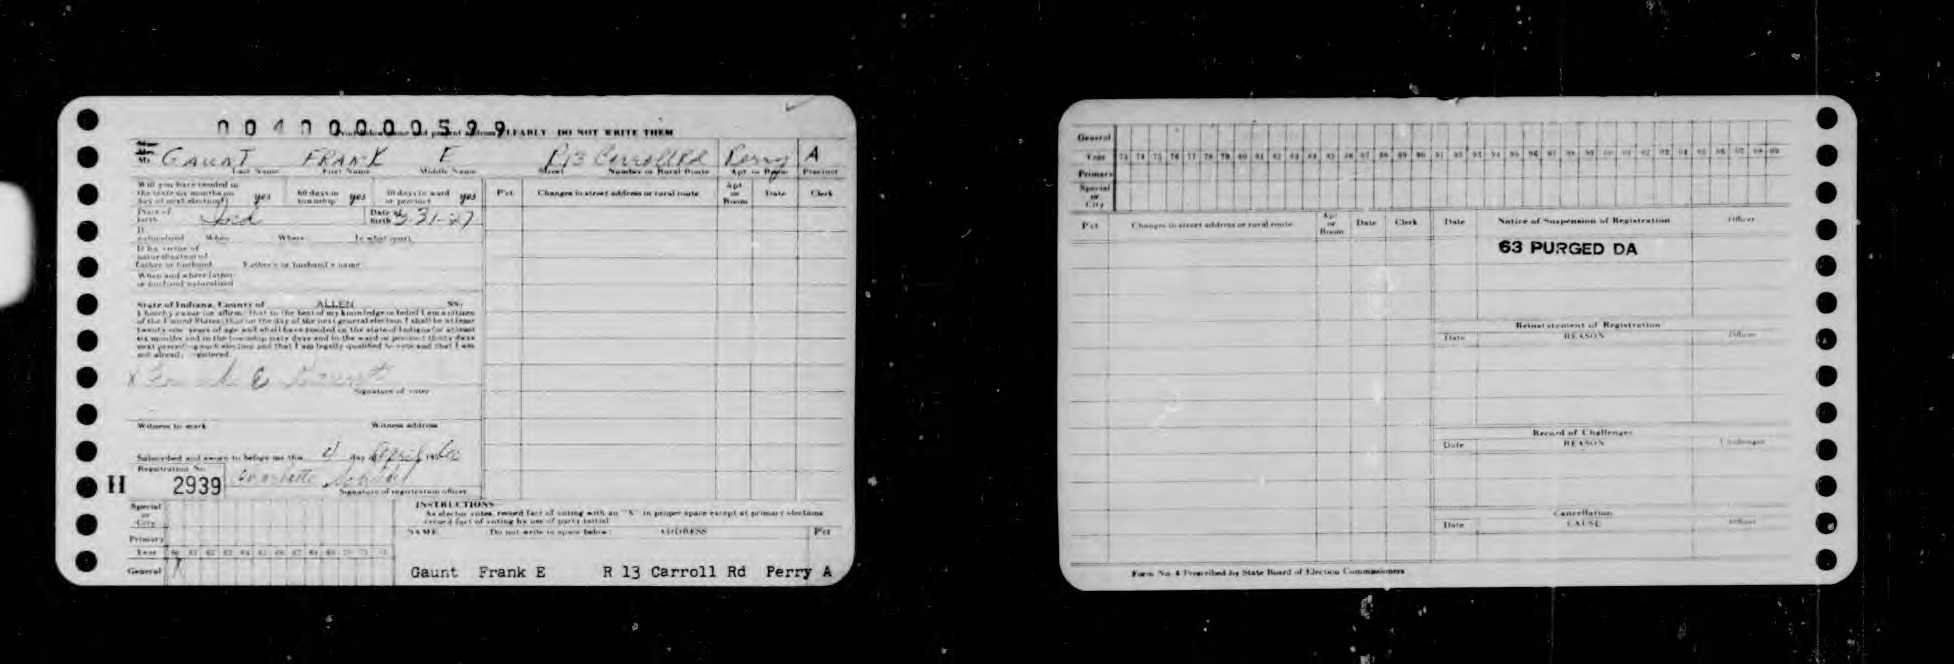 00400000599
CLEARLY DO NOT WRITE THEM
Mr GAUNT FRANK E R13 Carroll Rd Perry A
Last Name First Name Middle Name Street Number or Rural Route Apt or Room Precinct
Will you have resided in
the state six months on
day of next election? yes 60 days in
township yes 30 days in ward
or precinct yes
P'ct Changes in street address or rural route Apt
or
Room Date Clerk
Place of
birth Ind Date of
birth 31-27
If
naturalized When Where In what court
If by virtue of
naturalization of
father or husband Father's or husband's name
When and where father
or husband naturalized
State of Indiana, County of ALLEN SS:
I hereby swear (or affirm) that to the best of my knowledge or belief I am a citizen
of the United States; that on the day of the next general election I shall be at least
twenty-one years of age and shall have resided in the state of Indiana for at least
six months and in the township sixty days and in the ward or precinct thirty days
next preceding such election and that I am legally qualified to vote and that I am
not already registered.
X Frank E Gaunt
Signature of voter
Witness to mark Witness address
Subscribed and sworn to before me this 4 day of April 19
Registration No.
H 2939
Signature of registration officer
Special
or
City
Primary
Year 60 61 62 63 64 65 66 67 68 69 70 71 72
General X
INSTRUCTIONS
As elector votes, record fact of voting with an "X" in proper space except at primary elections
record fact of voting by use of party initial
NAME (Do not write in space below) ADDRESS P'ct
Gaunt Frank E R 13 Carroll Rd Perry A
General
Year 73 74 75 76 77 78 79 80 81 82 83 84 85 86 87 88 89 90 91 92 93 94 95 96 97 98 99 00 01 02 03 04 05 06 07 08 09
Primary
Special
or
City
P'ct Changes in street address or rural route Apt
or
Room Date Clerk
Date Notice of Suspension of Registration Officer
63 PURGED DA
Reinstatement of Registration
Date REASON Officer
Record of Challenges
Date REASON Challenger
Cancellation
Date CAUSE Officer
Form No. 4 Prescribed by State Board of Election Commissioners